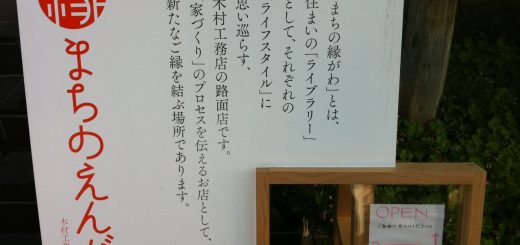 まちの縁がわ」とは、
住まいの「ライブラリー」
として、それぞれの
ライフスタイル」に
思い巡らす、
木村工務店の路面店です。
家づくり」のプロセスを伝えるお店として、
新たなご縁を結ぶ場所であります。
まちのえんが
木村工
OPEN